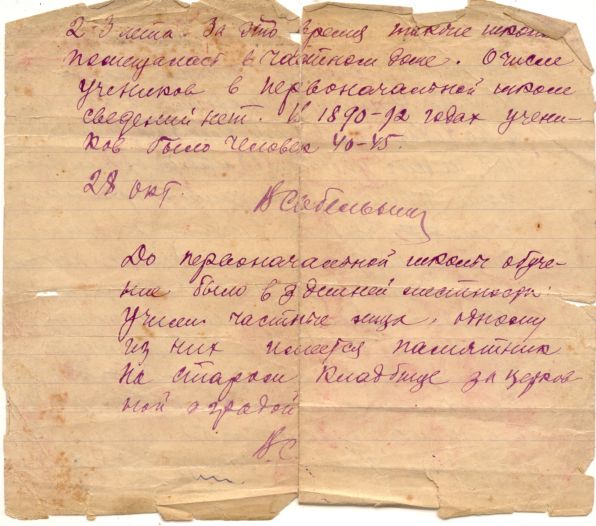 2-3 лета. За это время также школа
помещалась в частном доме. О числе
учеников в первоначальной школе
сведений нет. В 1890-92 годах учени-
ков было человек 40-45.
28 окт.
До первоначальной школы обуче-
ние было в здешней местности.
Учили частные лица, одному
из них имеется памятник
на старом кладбище за церков
ной оградой
В. С